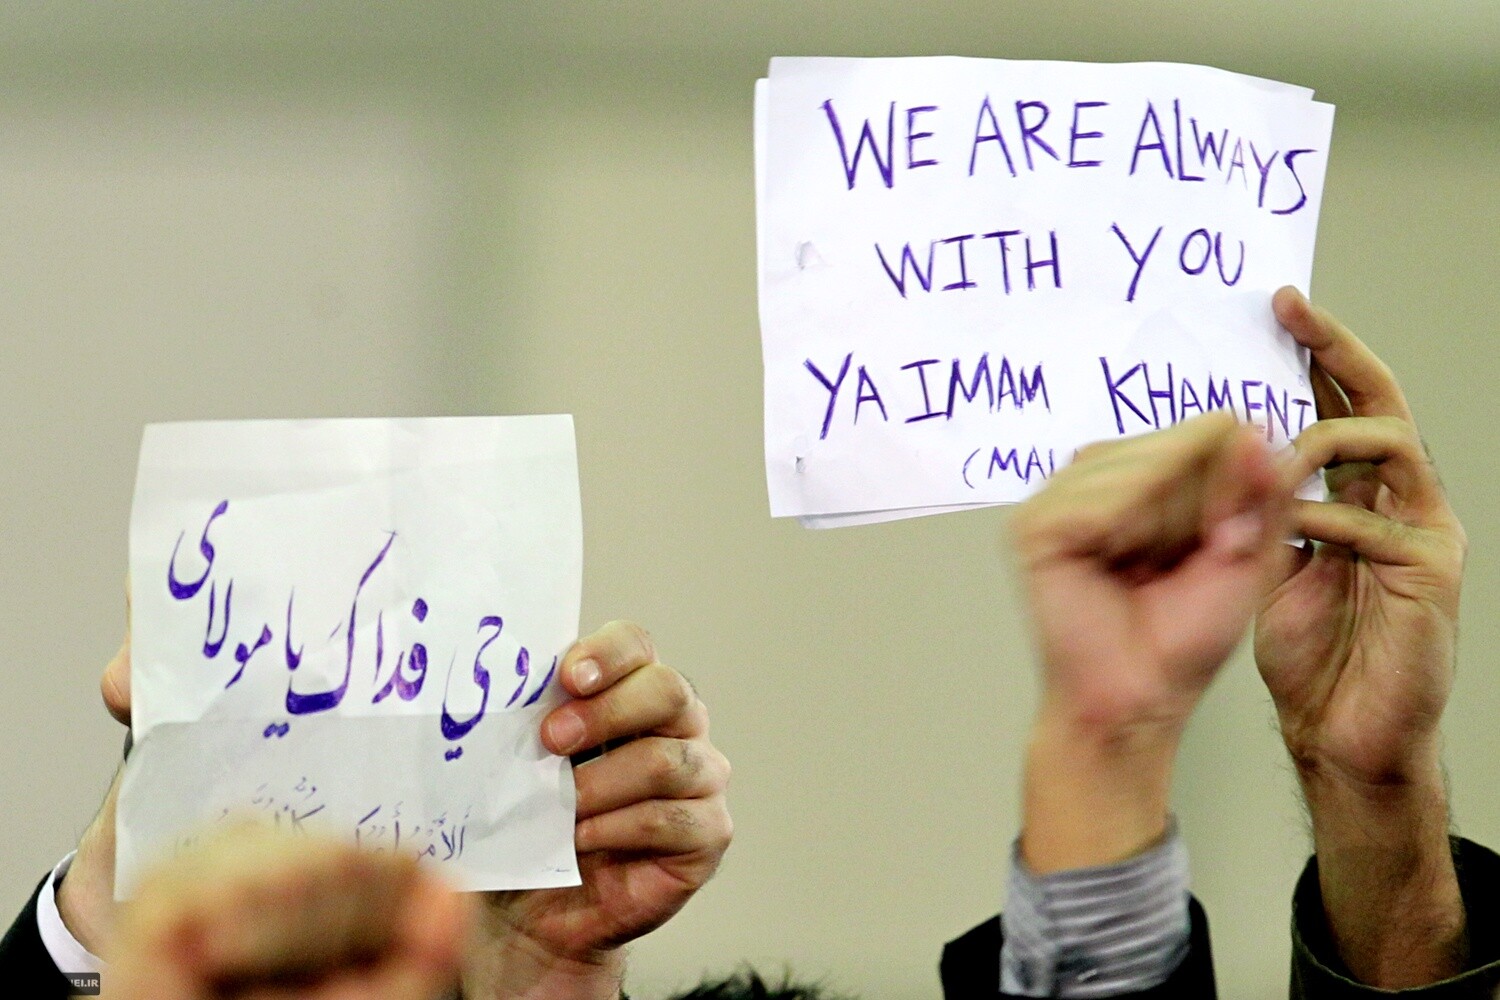 WE ARE ALWAYS
WITH YOU
YA IMAM KHAMENI
(MAL
روحي فداك يا مولاي